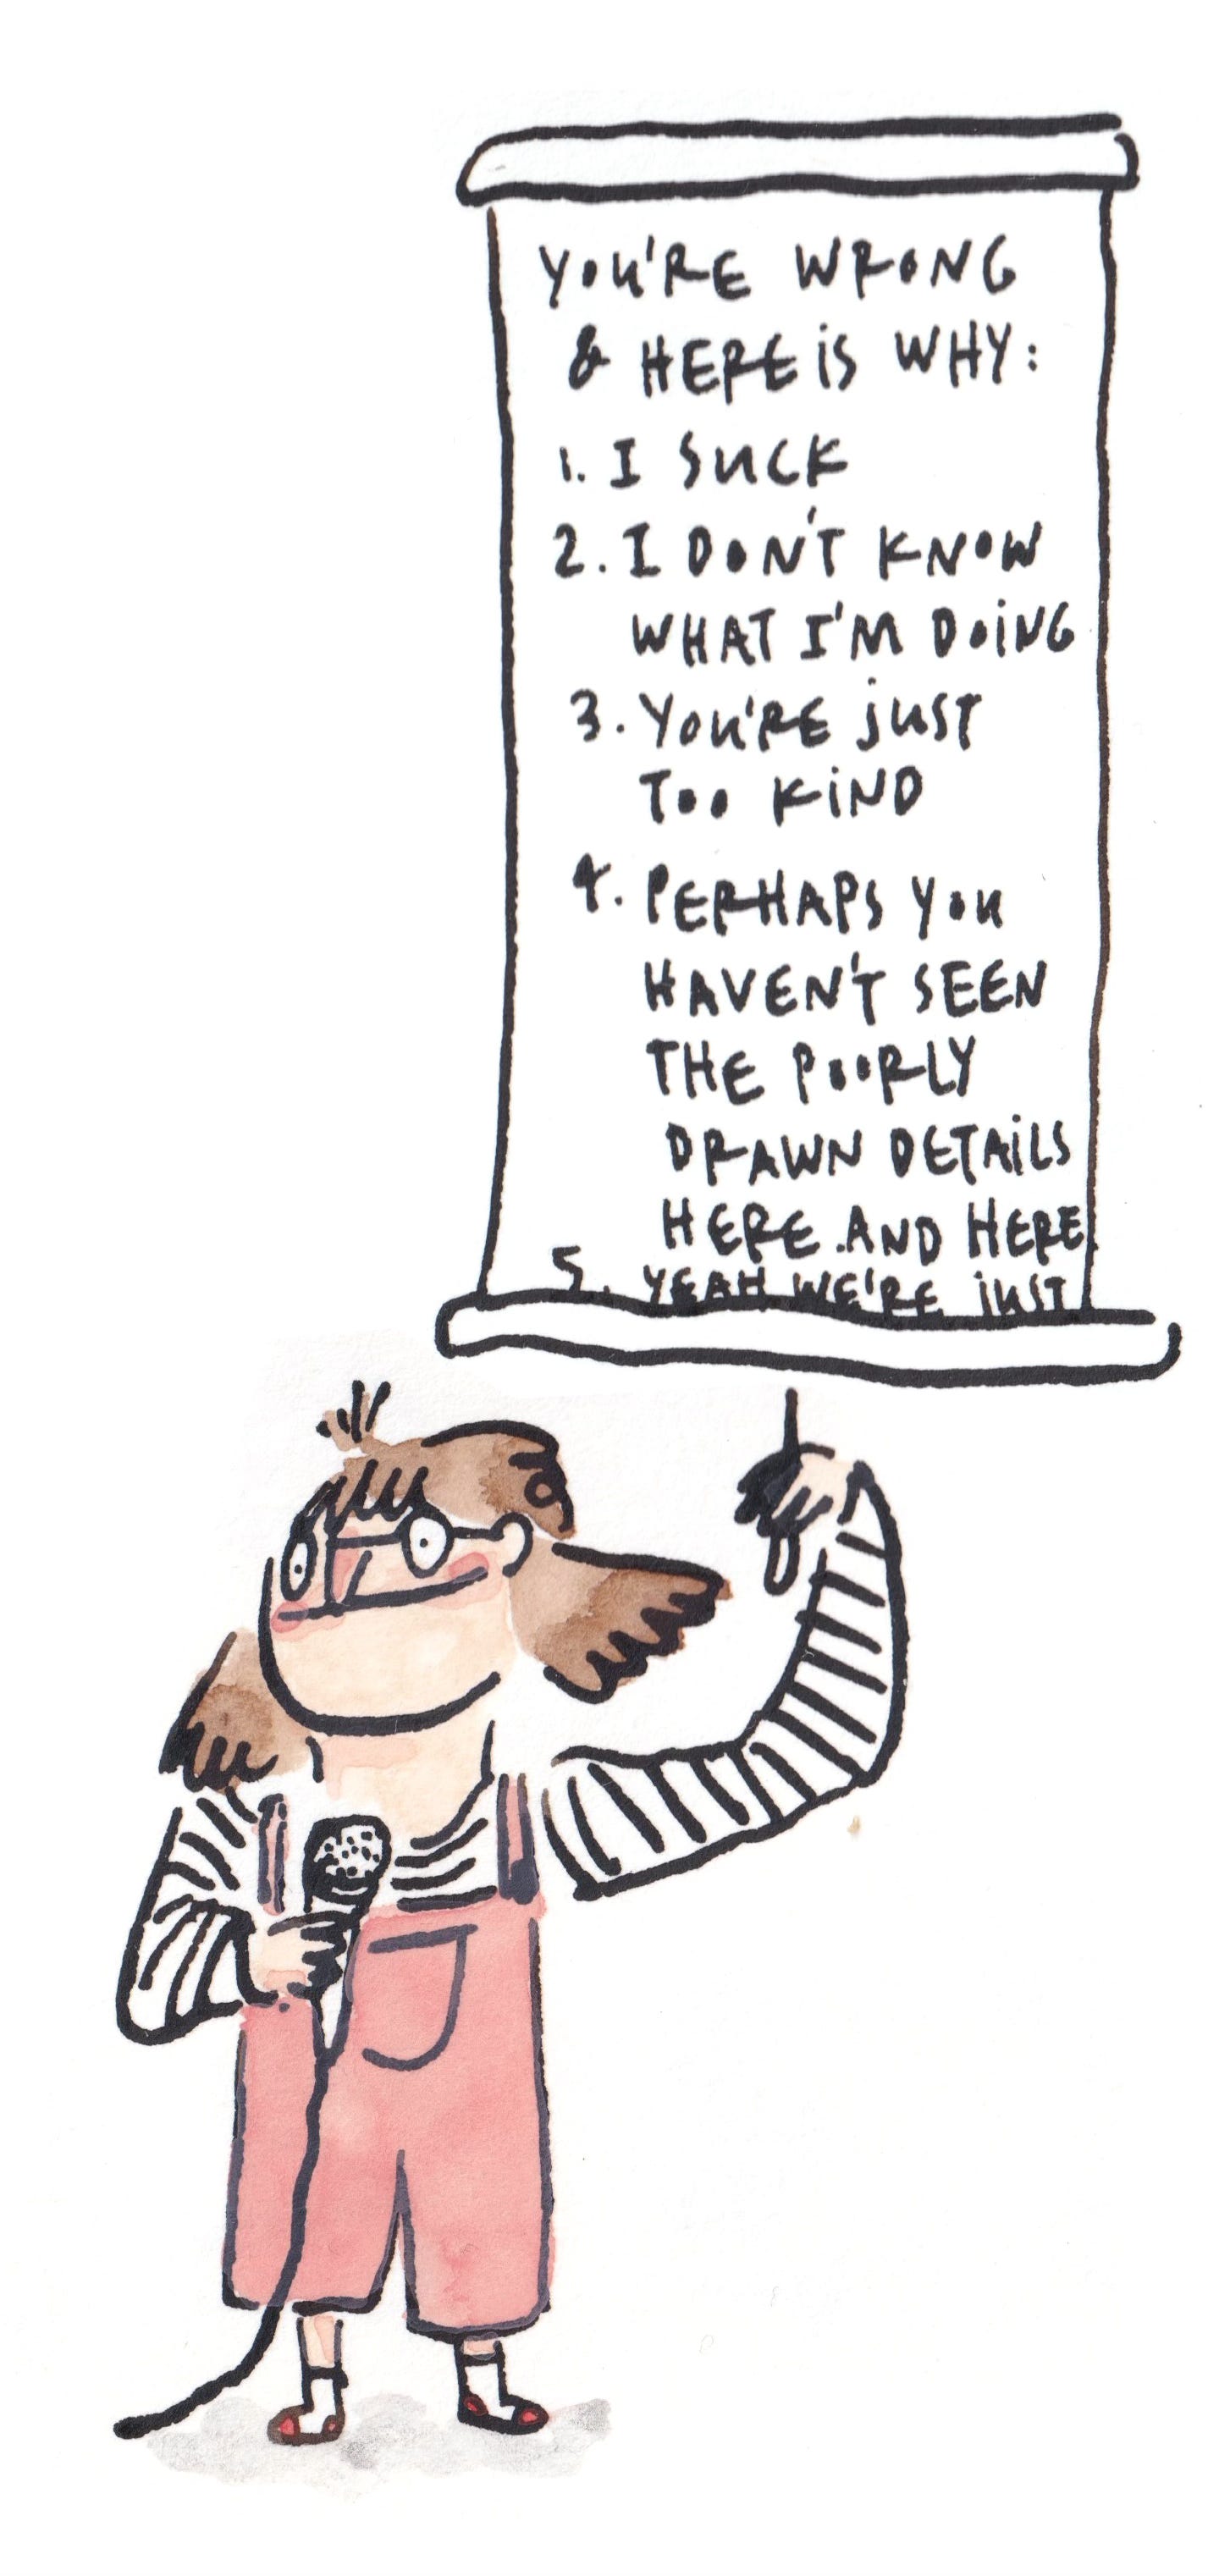 YOU'RE WRONG
& HERE IS WHY:
1. I SUCK
2. I DON'T KNOW
WHAT I'M DOING
3. YOU'RE JUST
TOO KIND
4. PERHAPS YOU
HAVEN'T SEEN
THE POORLY
DRAWN DETAILS
HERE AND HERE
5. YEAH WE'RE JUST